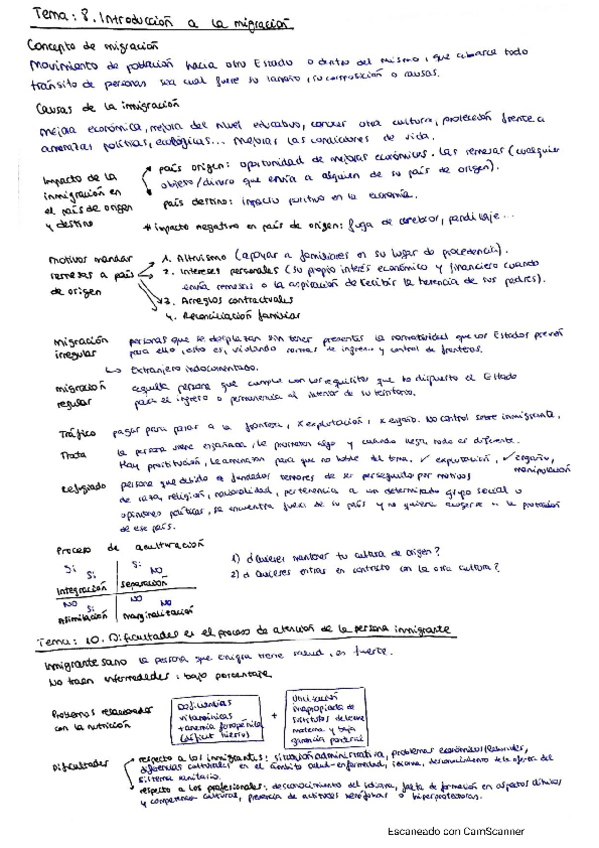 Tema: 8. Introducción a la migración
Concepto de migración
Movimiento de población hacia otro Estado o dentro del mismo, que abarca todo
tránsito de personas sea cual fuere su tamaño, su composición o causas.
Causas de la inmigración
Mejora económica, mejora del nivel educativo, conocer otra cultura, protección frente a
amenazas políticas, ecológicas... Mejorar las condiciones de vida.
Impacto de la
inmigración en
el país de origen
y destino
país origen: oportunidad de mejoras económicas. Las remesas (cualquier
objeto/dinero que envía a alguien de su país de origen).
país destino: impacto positivo en la economía.
* impacto negativo en país de origen: fuga de cerebros, pandillaje...
Motivos mandar
remesas a país
de origen
1. Altruismo (apoyar a familiares en su lugar de procedencia).
2. Intereses personales (su propio interés económico y financiero cuando
envía remesas o la aspiración de recibir la herencia de sus padres).
3. Arreglos contractuales
4. Reconciliación familiar
Migración
irregular
personas que se desplazan sin tener presentes la normatividad que los Estados prevén
para ello, esto es, violando normas de ingreso y control de fronteras.
↳ Extranjero indocumentado.
Migración
regular
aquella persona que cumple con los requisitos que ha dispuesto el Estado
para el ingreso o permanencia al interior de su territorio.
Tráfico pagar para pasar a la frontera, x explotación, x engaño. No control sobre inmigrante.
Trata la persona viene engañada, le prometen algo y cuando llega, todo es diferente.
Hay prostitución, le amenazan para que no hable del tema. ✓ explotación, ✓ engaño,
manipulación
Refugiado persona que debido a fundados temores de ser perseguido por motivos
de raza, religión, nacionalidad, pertenencia a un determinado grupo social u
opiniones políticas, se encuentra fuera de su país y no quiera acogerse a la protección
de ese país.
Proceso de aculturación
Si Si Integración
Si NO separación
NO Si Asimilación
NO NO marginalización
1) ¿Quieres mantener tu cultura de origen?
2) ¿Quieres entrar en contacto con la otra cultura?
Tema: 10. Dificultades en el proceso de atención de la persona inmigrante
Inmigrante sano la persona que emigra tiene salud, es fuerte.
No traen enfermedades: bajo porcentaje
Problemas relacionados
con la nutrición
Deficiencias
vitamínicas
+ anemia ferropénica
(déficit hierro)
+
Utilización
inapropiada de
sustitutos de leche
materna y baja
ganancia ponderal
Dificultades
respecto a los inmigrantes: situación administrativa, problemas económicos/laborales,
diferencias culturales en el ámbito salud-enfermedad, idioma, desconocimiento de la oferta del
sistema sanitario.
respecto a los profesionales: desconocimiento del idioma, falta de formación en aspectos clínicos
y competencias culturales, presencia de actitudes xenófobas o hiperprotectoras.
Escaneado con CamScanner